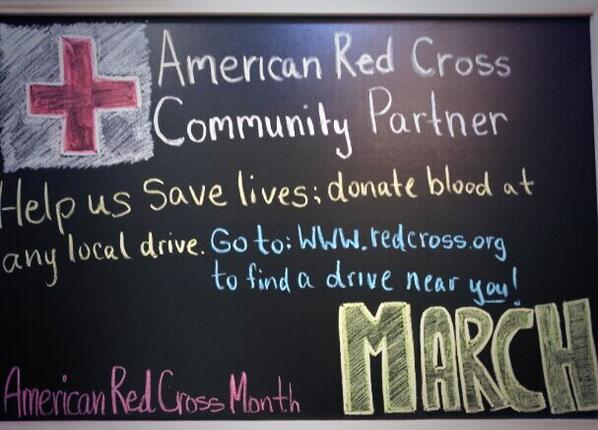 American Red Cross
Community Partner
Help us Save lives; donate blood at
any local drive. Go to: WWW.redcross.org
to find a drive near you!
MARCH
American Red Cross Month